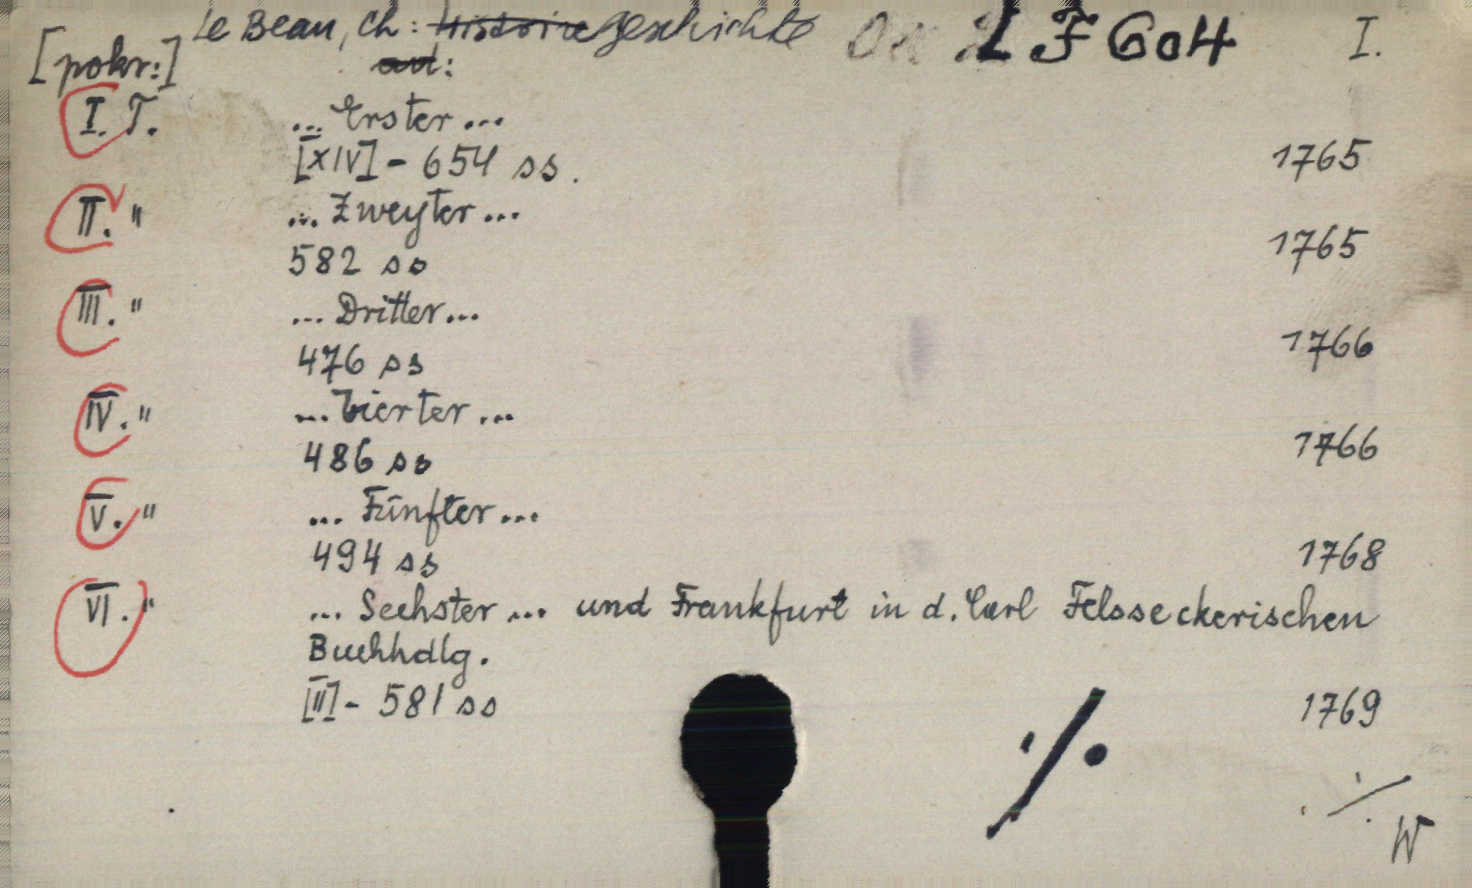 Le Beau, Ch: Histoire Geschichte LF 604 I.
[pokr:] aut:
I. T. ... Erster ...
[XIV] - 654 ss. 1765
II. " ... Zweyter ...
582 ss 1765
III. " ... Dritter ...
476 ss 1766
IV. " ... Vierter ...
486 ss 1766
V. " ... Fünfter ...
494 ss 1768
VI. " ... Sechster ... und Frankfurt in d. Carl Felsseckerischen
Buchhdlg.
[II] - 581 ss 1769
./.
./.
W